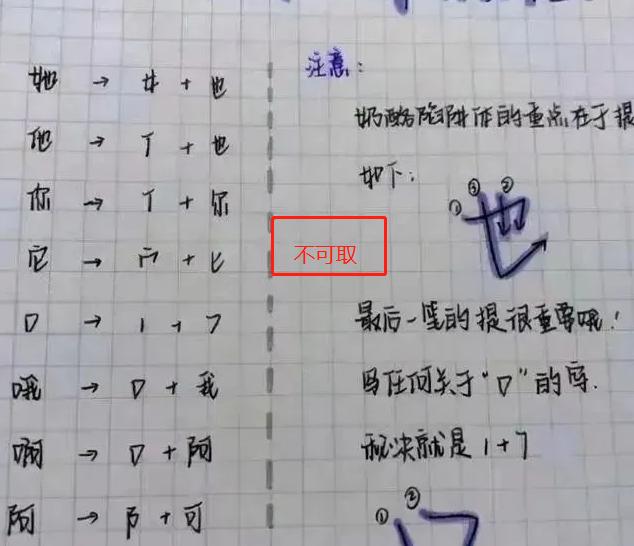 她 → 女 + 也
他 → 亻 + 也
你 → 亻 + 尔
它 → 宀 + 匕
口 → 1 + 7
哦 → 口 + 我
啊 → 口 + 阿
阿 → 阝 + 可
注意:
奶酪陷阱体的重点在于提
如下:
① ③ ②
也
不可取
最后一笔的提很重要哦!
写任何关于“口”的字.
秘决就是 1+7
① ②